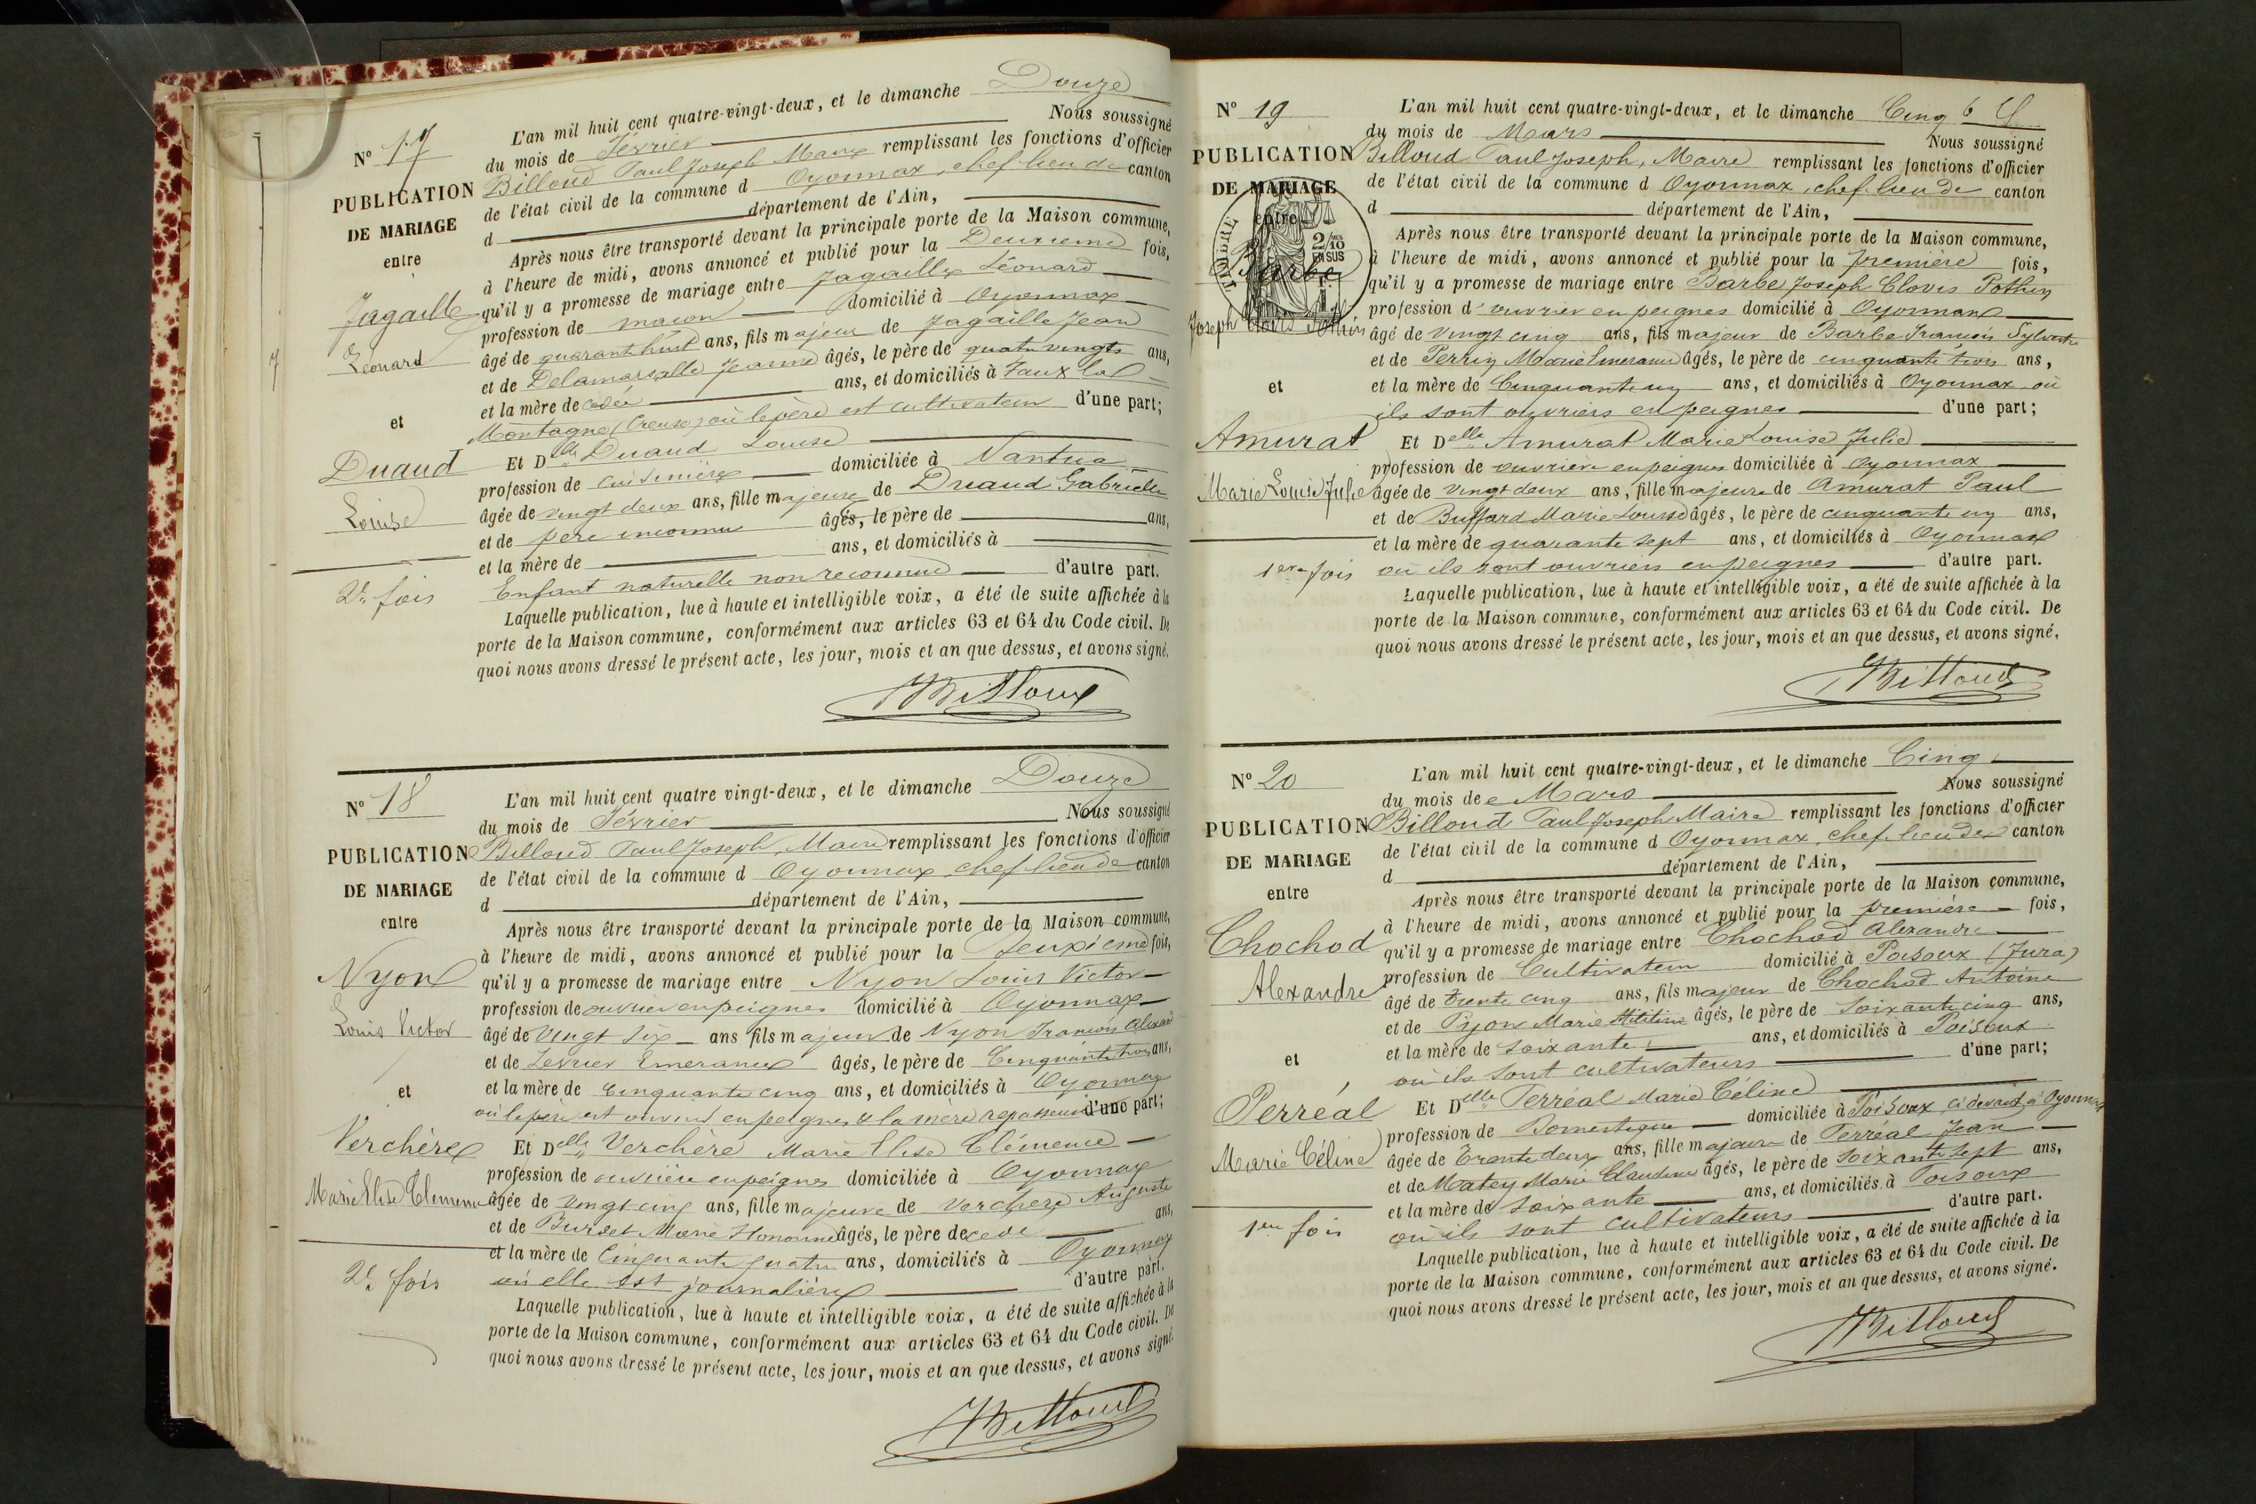 N° 17
PUBLICATION
DE MARIAGE
entre
Jagaille
Léonard
et
Duaud
Louise
2e fois
L'an mil huit cent quatre-vingt-deux, et le dimanche Douze
du mois de Février Nous soussigné
Billoud Paul Joseph Maire remplissant les fonctions d'officier
de l'état civil de la commune d Oyonnax, chef-lieu de canton
d département de l'Ain,
Après nous être transporté devant la principale porte de la Maison commune,
à l'heure de midi, avons annoncé et publié pour la Deuxieme fois,
qu'il y a promesse de mariage entre Jagaille Léonard
profession de maçon domicilié à Oyonnax
âgé de quarant huit ans, fils majeur de Jagaille Jean
et de Delamarsalle Jeanne âgés, le père de quatre vingts ans,
et la mère de cédée ans, et domiciliés à Faux la
Montagne (Creuse) où le père est cultivateur d'une part;
Et Delle Duaud Louise
profession de cuisinière domiciliée à Nantua
âgée de vingt deux ans, fille majeure de Duaud Gabrielle
et de père inconnu âgés, le père de ans,
et la mère de ans, et domiciliés à
Enfant naturelle non reconnue d'autre part.
Laquelle publication, lue à haute et intelligible voix, a été de suite affichée à la
porte de la Maison commune, conformément aux articles 63 et 64 du Code civil. De
quoi nous avons dressé le présent acte, les jour, mois et an que dessus, et avons signé.
Billoud
N° 18
PUBLICATION
DE MARIAGE
entre
Nyon
Louis Victor
et
Verchère
Marie Elise Clemence
2e fois
L'an mil huit cent quatre vingt-deux, et le dimanche Douze
du mois de Février Nous soussigné
Billoud Paul Joseph, Maire remplissant les fonctions d'officier
de l'état civil de la commune d Oyonnax chef lieu de canton
d département de l'Ain,
Après nous être transporté devant la principale porte de la Maison commune,
à l'heure de midi, avons annoncé et publié pour la Deuxième fois,
qu'il y a promesse de mariage entre Nyon Louis Victor
profession de ouvrier en peignes domicilié à Oyonnax
âgé de vingt six ans fils majeur de Nyon François
et de Levrier Emerance âgés, le père de Cinquante trois ans,
et la mère de cinquante cinq ans, et domiciliés à Oyonnax
où le père est ouvrier en peignes & la mère repasseuse d'une part;
Et Delle Verchère Marie Elise Clémence
profession de ouvrière en peignes domiciliée à Oyonnax
âgée de vingt cinq ans, fille majeure de Verchere Auguste
et de Burdet Marie Honorine âgés, le père decede ans,
et la mère de Cinquante quatre ans, domiciliés à Oyonnax
où elle est journalière d'autre part.
Laquelle publication, lue à haute et intelligible voix, a été de suite affichée à la
porte de la Maison commune, conformément aux articles 63 et 64 du Code civil. De
quoi nous avons dressé le présent acte, les jour, mois et an que dessus, et avons signé.
Billoud
N° 19
PUBLICATION
DE MARIAGE
entre
TIMBRE
2/10
EN SUS
Barbe
Joseph Clovis Pothin
et
Amurat
Marie Louise Julie
1ere fois
L'an mil huit cent quatre-vingt-deux, et le dimanche Cinq
du mois de Mars Nous soussigné
Billoud Paul Joseph, Maire remplissant les fonctions d'officier
de l'état civil de la commune d Oyonnax, chef-lieu de canton
d département de l'Ain,
Après nous être transporté devant la principale porte de la Maison commune,
à l'heure de midi, avons annoncé et publié pour la première fois,
qu'il y a promesse de mariage entre Barbe Joseph Clovis Pothin
profession d'ouvrier en peignes domicilié à Oyonnax
âgé de vingt cinq ans, fils majeur de Barbe François Sylvestre
et de Perrin Marie Emerance âgés, le père de cinquante trois ans,
et la mère de Cinquante un ans, et domiciliés à Oyonnax où
ils sont ouvriers en peignes d'une part;
Et Delle Amurat Marie Louise Julie
profession de ouvrière en peignes domiciliée à Oyonnax
âgée de vingt deux ans, fille majeure de Amurat Paul
et de Buffard Marie Louise âgés, le père de cinquante un ans,
et la mère de quarante sept ans, et domiciliés à Oyonnax
où ils sont ouvriers en peignes d'autre part.
Laquelle publication, lue à haute et intelligible voix, a été de suite affichée à la
porte de la Maison commune, conformément aux articles 63 et 64 du Code civil. De
quoi nous avons dressé le présent acte, les jour, mois et an que dessus, et avons signé.
Billoud
N° 20
PUBLICATION
DE MARIAGE
entre
Chochod
Alexandre
et
Perréal
Marie Céline
1ere fois
L'an mil huit cent quatre-vingt-deux, et le dimanche Cinq
du mois de Mars Nous soussigné
Billoud Paul Joseph Maire remplissant les fonctions d'officier
de l'état civil de la commune d Oyonnax, chef-lieu de canton
d département de l'Ain,
Après nous être transporté devant la principale porte de la Maison commune,
à l'heure de midi, avons annoncé et publié pour la première fois,
qu'il y a promesse de mariage entre Chochod Alexandre
profession de Cultivateur domicilié à Poisoux (Jura)
âgé de trente cinq ans, fils majeur de Chochod Antoine
et de Pyon Marie âgés, le père de soixante cinq ans,
et la mère de soixante ans, et domiciliés à Poisoux
où ils sont cultivateurs d'une part;
Et Delle Perréal Marie Céline
profession de Domestique domiciliée à Poisoux ci devant à Oyonnax
âgée de Trente deux ans, fille majeure de Perréal Jean
et de Matey Marie Claudine âgés, le père de soixante sept ans,
et la mère de soixante ans, et domiciliés à Poisoux
où ils sont cultivateurs d'autre part.
Laquelle publication, lue à haute et intelligible voix, a été de suite affichée à la
porte de la Maison commune, conformément aux articles 63 et 64 du Code civil. De
quoi nous avons dressé le présent acte, les jour, mois et an que dessus, et avons signé.
Billoud